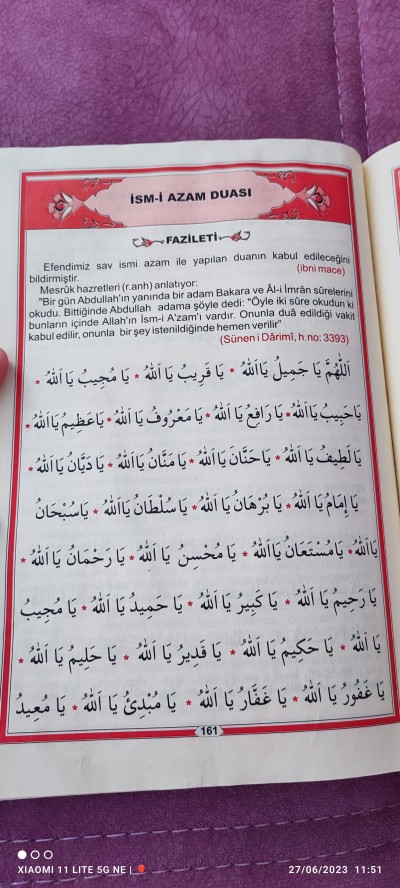 İSM-İ AZAM DUASI
FAZİLETİ
Efendimiz sav ismi azam ile yapılan duanın kabul edileceğini
bildirmiştir. (ibni mace)
Mesrûk hazretleri (r.anh) anlatıyor:
"Bir gün Abdullah'ın yanında bir adam Bakara ve Âl-i İmrân sûrelerini
okudu. Bittiğinde Abdullah adama şöyle dedi: "Öyle iki sûre okudun ki
bunların içinde Allah'ın İsm-i A'zam'ı vardır. Onunla duâ edildiği vakit
kabul edilir, onunla bir şey istenildiğinde hemen verilir"
(Sünen i Dârimî, h.no: 3393)
اَللّٰهُمَّ يَا جَمِيلُ يَااَللّٰهُ * يَا قَرِيبُ يَا اَللّٰهُ * يَا مُجِيبُ يَا اَللّٰهُ *
يَاحَبِيبُ يَااَللّٰهُ * يَا رَافِعُ يَا اَللّٰهُ * يَا مَعْرُوفُ يَا اَللّٰهُ * يَاعَظِيمُ يَااَللّٰهُ *
يَا لَطِيفُ يَا اَللّٰهُ * يَاحَنَّانُ يَااَللّٰهُ * يَا مَنَّانُ يَااَللّٰهُ * يَا دَيَّانُ يَا اَللّٰهُ *
يَا اِمَامُ يَا اَللّٰهُ * يَا بُرْهَانُ يَا اَللّٰهُ * يَا سُلْطَانُ يَااَللّٰهُ * يَاسُبْحَانُ
يَااَللّٰهُ * يَامُسْتَعَانُ يَااَللّٰهُ * يَا مُحْسِنُ يَا اَللّٰهُ * يَا رَحْمَانُ يَا اَللّٰهُ *
يَا رَحِيمُ يَا اَللّٰهُ * يَا كَبِيرُ يَا اَللّٰهُ * يَا حَمِيدُ يَا اَللّٰهُ * يَا مُجِيبُ
يَا اَللّٰهُ * يَا حَكِيمُ يَا اَللّٰهُ * يَا قَدِيرُ يَا اَللّٰهُ * يَا حَلِيمُ يَا اَللّٰهُ *
يَا غَفُورُ يَا اَللّٰهُ * يَا غَفَّارُ يَا اَللّٰهُ * يَا مُبْدِئُ يَا اَللّٰهُ * يَا مُعِيدُ
161
XIAOMI 11 LITE 5G NE | 27/06/2023 11:51